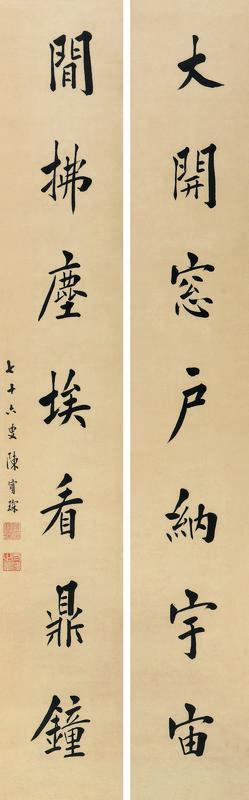 大開窓戶納宇宙
閒拂塵埃看鼎鐘
七十六叟陳寶琛